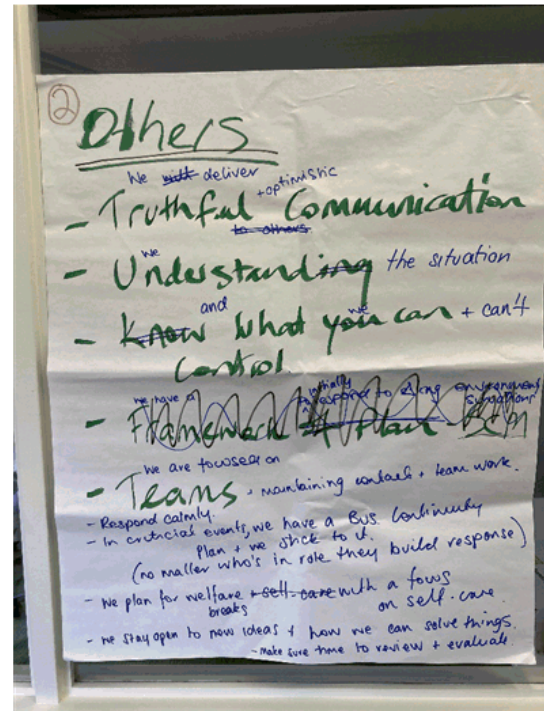 2
Others
We will deliver
+ optimistic
- Truthful Communication
to others
we
- Understanding the situation
and we
- Know What you can + can't
Control
we have a initially
respond to
situations
- Framework + Plan
we are focused on
- Teams, maintaining contact + team work.
- Respond calmly.
- In criticial events, we have a Bus. Continuity
Plan + we stick to it.
(no matter who's in role they build response)
- We plan for welfare + self-care with a focus
breaks on self-care
- we stay open to new ideas + how we can solve things.
- make sure time to review + evaluate.